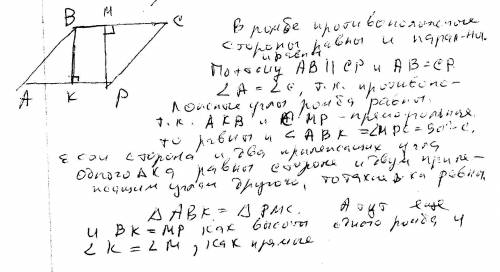 B M C
A K P
В ромбе противоположные
стороны равны и парал-ны.
Потому AB || CP и AB=CP.
∠A = ∠C, т.к. противопо-
ложные углы ромба равны.
т.к. AKB и CMP - прямоугольные
то равны и ∠ABK = ∠MPC = 90°-C,
Если сторона и два прилежащих угла
одного Δка равны стороне и двум приле-
жащим углам другого, то такие Δка равны.
Δ ABK = Δ PMC. А тут еще
и BK = MP как высоты одного ромба и
∠K = ∠M, как прямые